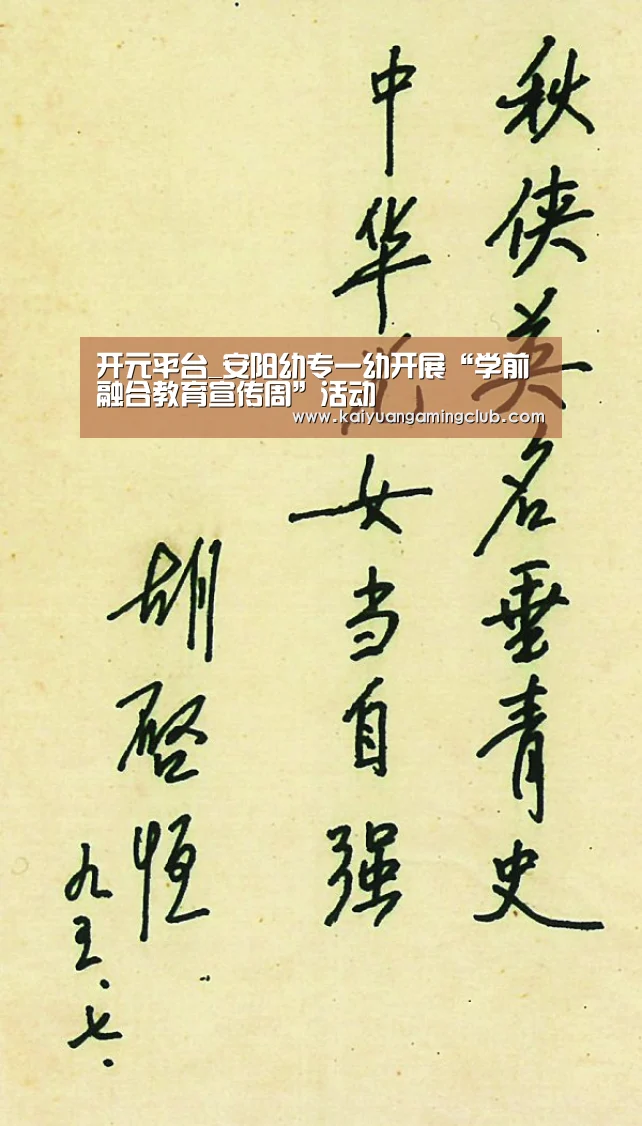 秋侠英名垂青史
中华女当自强
胡啓恒
九五.七.
开元平台_安阳幼专一幼开展“学前
融合教育宣传周”活动
www.kaiyuangamingclub.com